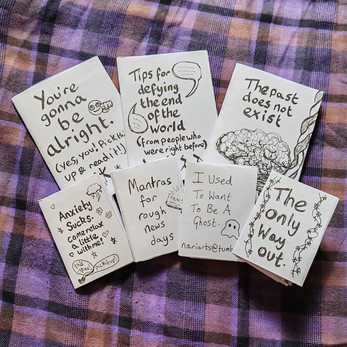 You're
gonna
be
alright.
(yes, you! Pick it
up & read it!)
Tips for
defying the
end of
the
world
(from people who
were right before)
The past
does not
exist
Anxiety
Sucks.
come relax
a little
with me!
Mantras
for
rough
news
days
I Used
To Want
To Be A
Ghost
nariarts@tumb
The
only
way
out.